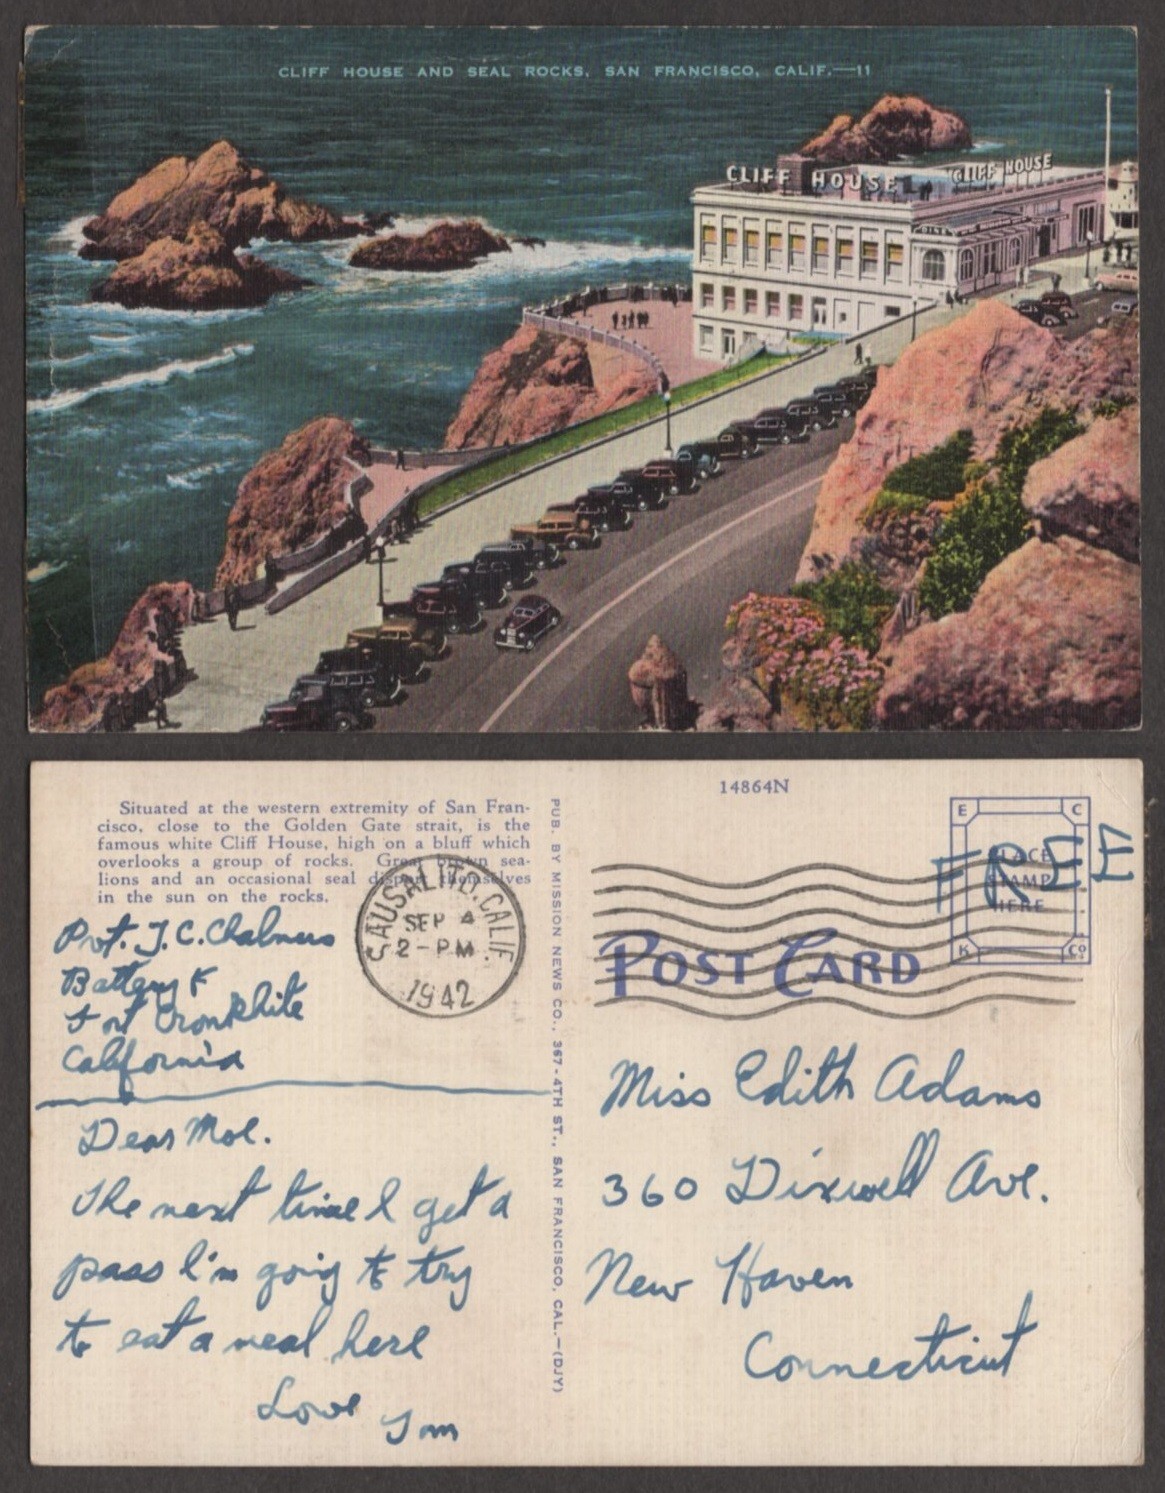 CLIFF HOUSE AND SEAL ROCKS, SAN FRANCISCO, CALIF.—11
CLIFF HOUSE
CLIFF HOUSE
14864N
Situated at the western extremity of San Fran-
cisco, close to the Golden Gate strait, is the
famous white Cliff House, high on a bluff which
overlooks a group of rocks. Great brown sea-
lions and an occasional seal disport themselves
in the sun on the rocks.
SAUSALITO, CALIF.
SEP 4
2-PM
1942
Pvt. J. C. Chalmers
Battery F
Fort Cronkhite
California
Dear Mol.
The next time I get a
pass I'm going to try
to eat a meal here
Love Tom
PUB. BY MISSION NEWS CO., 367-4TH ST., SAN FRANCISCO, CAL.—(DJY)
E C
PLACE
STAMP
HERE
K Co
FREE
POST CARD
Miss Edith Adams
360 Dixwell Ave.
New Haven
Connecticut